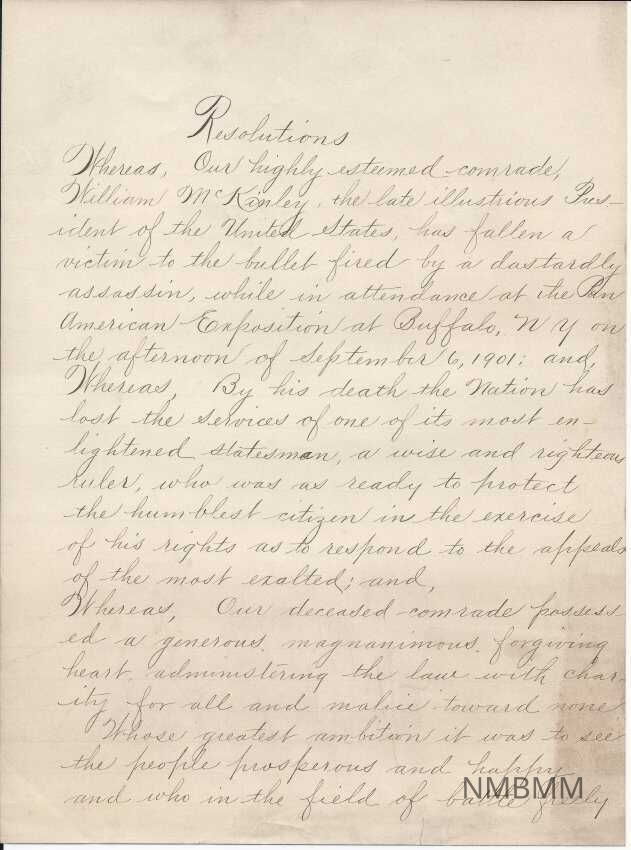 Resolutions
Whereas, Our highly esteemed comrade,
William McKinley, the late illustrious Pres-
ident of the United States, has fallen a
victim to the bullet fired by a dastardly
assassin, while in attendance at the Pan
American Exposition at Buffalo, N Y on
the afternoon of September 6, 1901; and,
Whereas, By his death the Nation has
lost the services of one of its most en-
lightened statesman, a wise and righteous
ruler, who was as ready to protect
the humblest citizen in the exercise
of his rights as to respond to the appeals
of the most exalted; and,
Whereas, Our deceased comrade possess
ed a generous, magnanimous, forgiving
heart, administering the law with char-
ity for all and malice toward none
Whose greatest ambition it was to see
the people prosperous and happy
and who in the field of battle freely
NMBMM